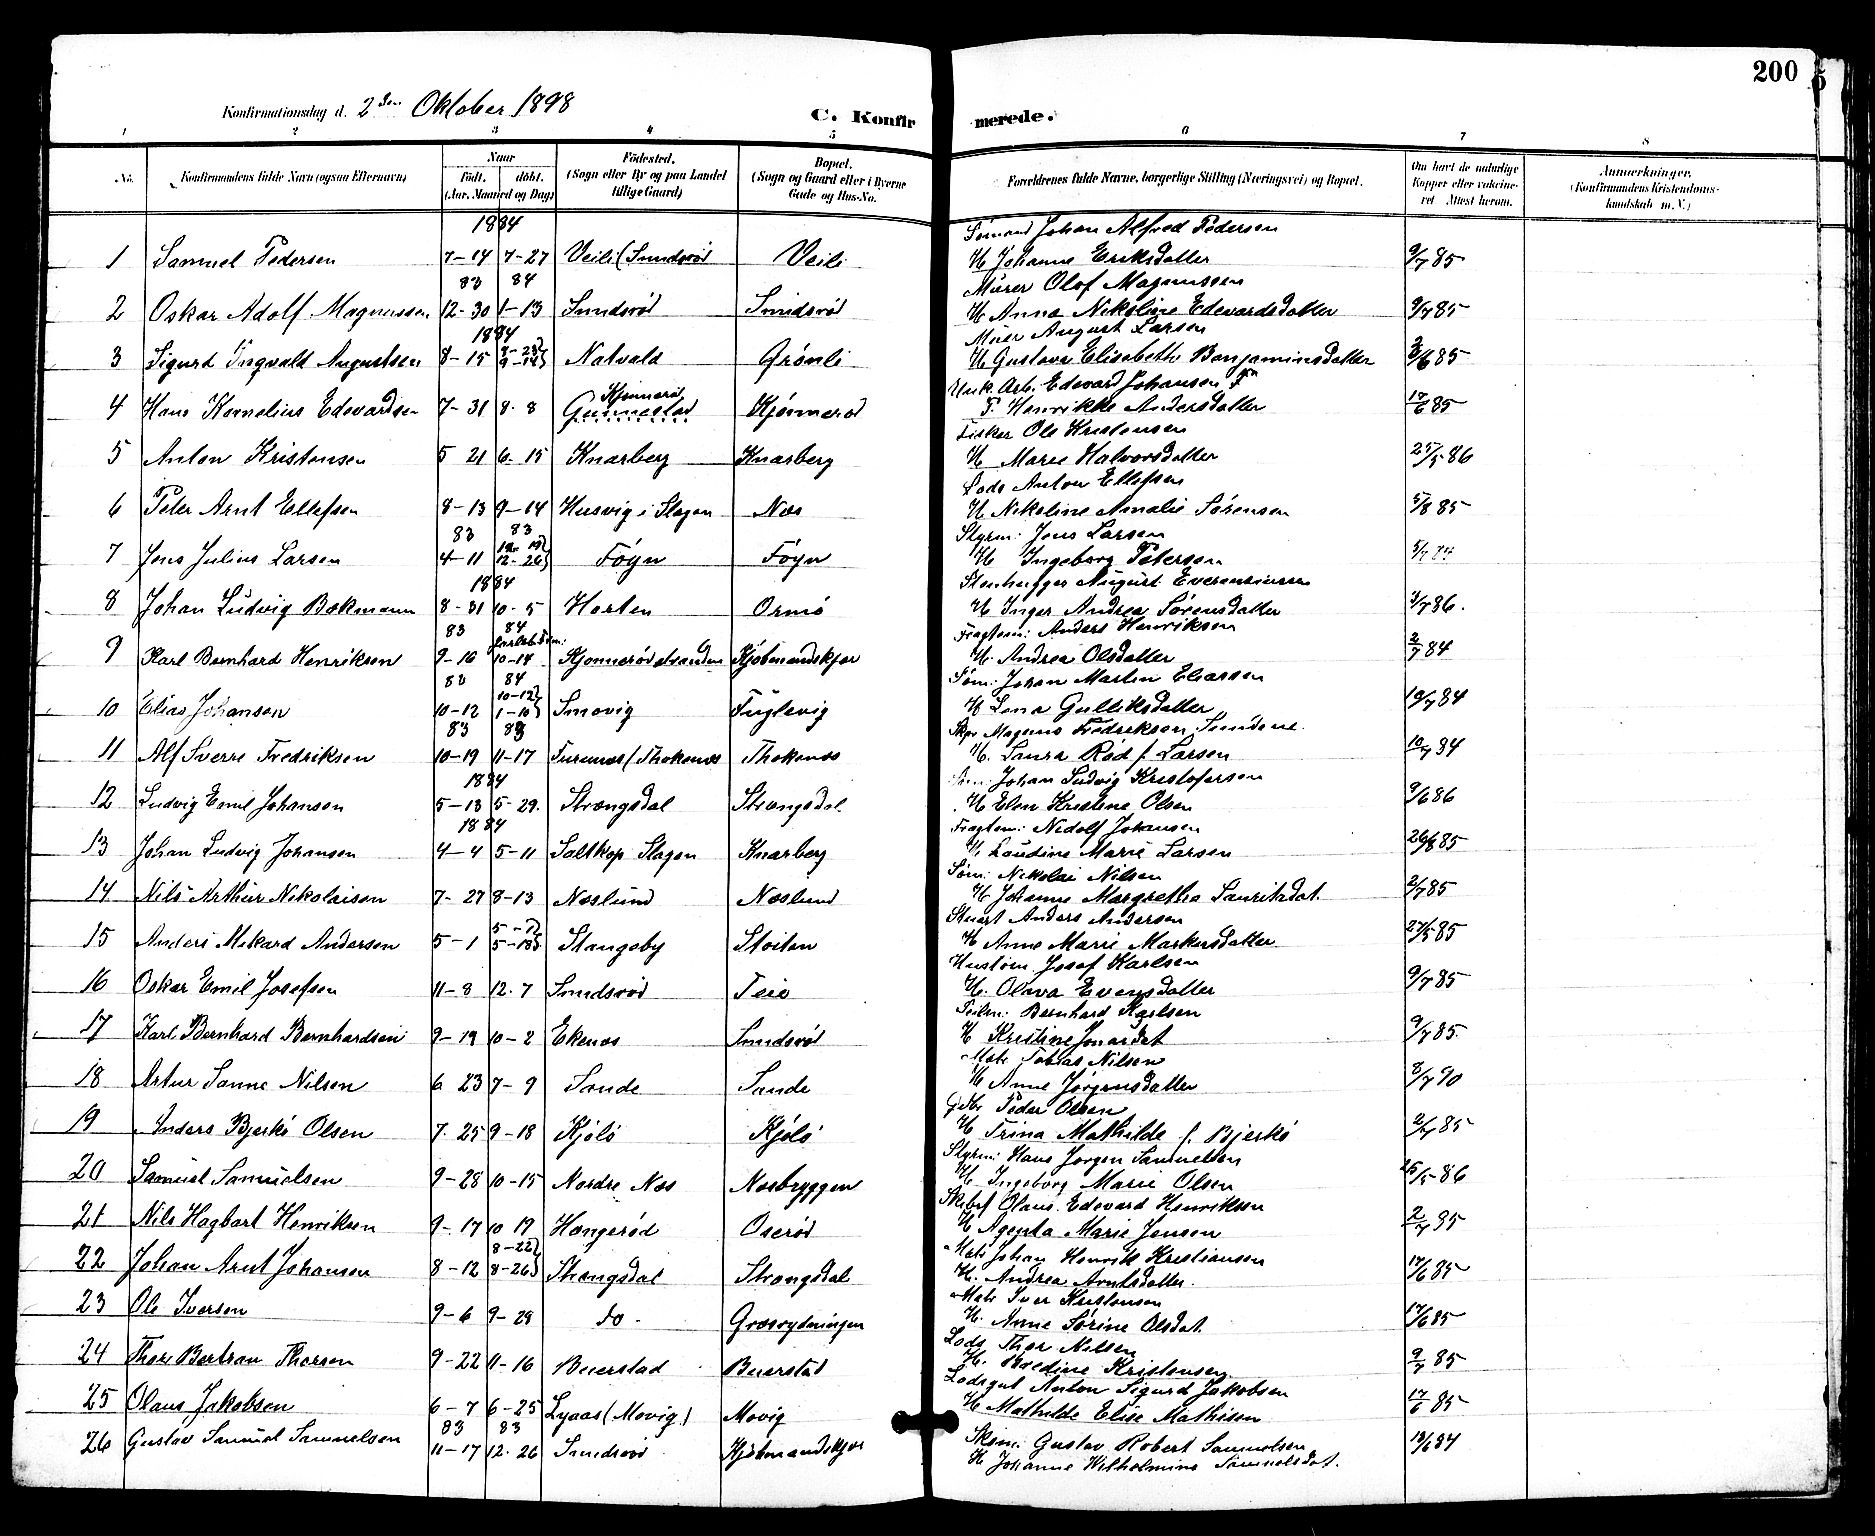 200
Konfirmationsdag d. 2den Oktober 1898
C. Konfir merede.
1 2 3 4 5 6 7 8
No. Konfirmandens fulde Navn (ogsaa Efternavn) Naar Födt. döbt. (Aar, Maaned og Dag) Födested. (Sogn eller By og paa Landet tillige Gaard) Bopæl. (Sogn og Gaard eller i Byerne Gade og Hus-No. Forældrenes fulde Navne, borgerlige Stilling (Næringsvei) og Bopæl. Om havt de naturlige Kopper eller vaccineret Attest herom. Anmerkninger. (Konfirmandens Kristendomskundskab m. V.)
1884 Sømand Johan Alfred Pedersen
1 Samuel Pedersen 7-14 7-27 Veili (Smidsrød Veili H Johanne Eriksdatter 9/7 85
83 84 Murer Olof Magnussen
2 Oskar Adolf Magnussen 12-30 1-13 Smidsrød Smidsrød H Anna Nikoline Edevardsdatter 9/7 85
1884 August Larsen
3 Sigurd Ingvald Augustsen 8-15 Natvald Grønli H Gustava Elisabeth Benjaminsdatter 85
Kjønnerød Edevard Johansen
4 Hans Kornelius Edevardsen 7-31 8-8 Gunnestad Kjønnerød F. Henrikke Andersdatter 17/6 85
Fisker Ole Kristensen
5 Anton Kristensen 5 21 6-15 Knarberg Knarberg H Marie Halvorsdatter 25/5 86
Lods Anton Ellefsen
6 Peter Arnt Ellefsen 8-13 9-14 Husvig i Slagen Næs H Nikoline Amalie Sørensen 5/8 85
83 83 Styrm: Jens Larsen
7 Jens Julius Larsen 4-11 12-26 Føyn Føyn H Ingeborg Petersen
1884 Stenhugger August
8 Johan Ludvig Bøkmann 8-31 10-5 Horten Ormø H Inger Andrea Sørensdatter 3/7 86.
83 84 Fragtem: Anders Henriksen
9 Karl Bernhard Henriksen 9-16 10-14 Kjønnerødstranden Kjøbmandskjær H. Andrea Olsdatter 2/7 84
83 84 Søm: Johan Martin Eliassen
10 Elias Johansen 10-12 1-10 Smøvig Fuglevig H Lena Gulliksdatter 10/7 84
83 83 Skpr Magnus Fredriksen Sundene
11 Alf Sverre Fredriksen 10-19 11-17 Furunæs (Thokenæs Thokenæs H. Laura Rød f. Larsen 10/7 84
1884 Johan Ludvig Kristofersen
12 Ludvig Emil Johansen 5-13 5-29. Strængsdal Strængsdal H Elen Kristine Olsen 9/6 86
1884 Fragtem: Nedolf Johansen
13 Johan Ludvig Johansen 4-4 5-11 Saltkop Slagen Knarberg H Laudine Marie Larsen 26/8 85
Søm: Nikolai Nilsen
14 Nils Arthur Nikolaisen 7-27 8-13 Næslund Næslund H Johanne Margrethe Lauritzdat. 2/7 85
Stuart Anders Andersen
15 Anders Mekard Andersen 5-1 5-18 Stangeby Stoiten H Anne Marie Markusdatter 27/5 85
Hustøm. Josef Karlsen
16 Oskar Emil Josefsen 11-8 12-7 Smidsrød Teie H. Olava Evensdatter 9/7 85
Bernhard Karlsen
17 Karl Bernhard Bernhardsen 9-19 10-2 Ekenæs Smidsrød H Kristine Jonasdat 9/7 85.
Matr Tobias Nilsen
18 Artur Sanne Nilsen 6 23 7-9 Sande Sande H Anne Jørgensdatter 3/7 90
Gdbr Peder Olsen
19 Anders Bjerkø Olsen 7-25 9-18 Kjølø Kjølø H Trina Mathilde f. Bjerkø 2/7 85
Styrm: Hans Jørgen Samuelsen
20 Samuel Samuelsen 9-28 10-15 Nordre Næs Næsbryggen H. Ingeborg Marie Olsen 25/5 86
Skibsf Olaus Edevard Henriksen
21 Nils Hagbart Henriksen 9-17 10 19 Hængerød Oserød H Agenta Marie Jensen 2/7 85
8-22 Matr Johan Henrik Kristiansen
22 Johan Arnt Johansen 8-12 8-26 Strængsdal Strængsdal H. Andrea Arntsdatter. 17/6 85
Matr Iver Kristensen
23 Ole Iversen 9-6 9-28 do - Græsrydningen H. Anne Sørine Olsdat. 17/6 85
Lods Thor Nilsen
24 Thor Bertran Thorsen 9-22 11-16 Buerstad Buerstad H. Bredine Kristensen 9/7 85
Lodsgut Anton Sigurd Jakobsen
25 Olaus Jakobsen 6-7 6-25 Lyaas (Movig) Movig H Mathilde Elise Mathisen 17/6 85
83 83 Gustav Robert Samuelsen
26 Gustav Samuel Samuelsen 11-17 12-26 Smidsrød Kjøbmandskjær H Johanne Wilhelmine Samuelsdat. 18/6 84